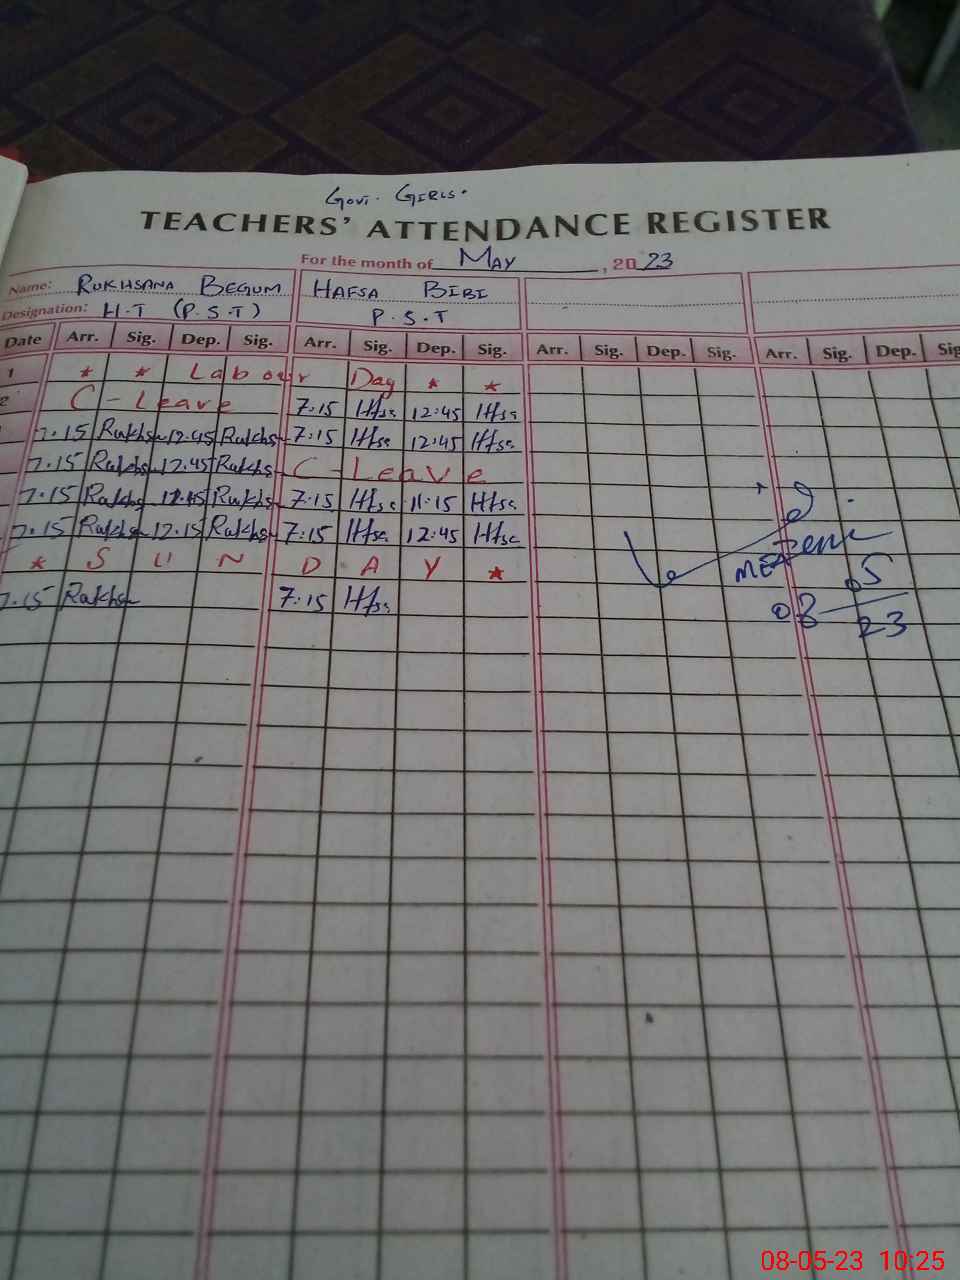 Govt. Girls.
TEACHERS' ATTENDANCE REGISTER
For the month of May , 2023
Name: Rukhsana Begum Hafsa Bibi
Designation: H.T (P.S.T) P.S.T
Date Arr. Sig. Dep. Sig. Arr. Sig. Dep. Sig. Arr. Sig. Dep. Sig. Arr. Sig. Dep. Sig
1 * * Labour Day * *
2 C-Leave 7:15 Hfsa 12:45 Hfsa
7.15 Rukhs 12.45 Rukhs 7:15 Hfsa 12:45 Hfsa
7.15 Rukhs 12.45 Rukhs C-Leave
7.15 Rukhs 12.45 Rukhs 7:15 Hfsa 11:15 Hfsa
7.15 Rukhs 12.15 Rukhs 7:15 Hfsa 12:45 Hfsa
* S U N D A Y *
7.15 Rukhs 7:15 Hfsa
MEA
08 05
23
08-05-23 10:25